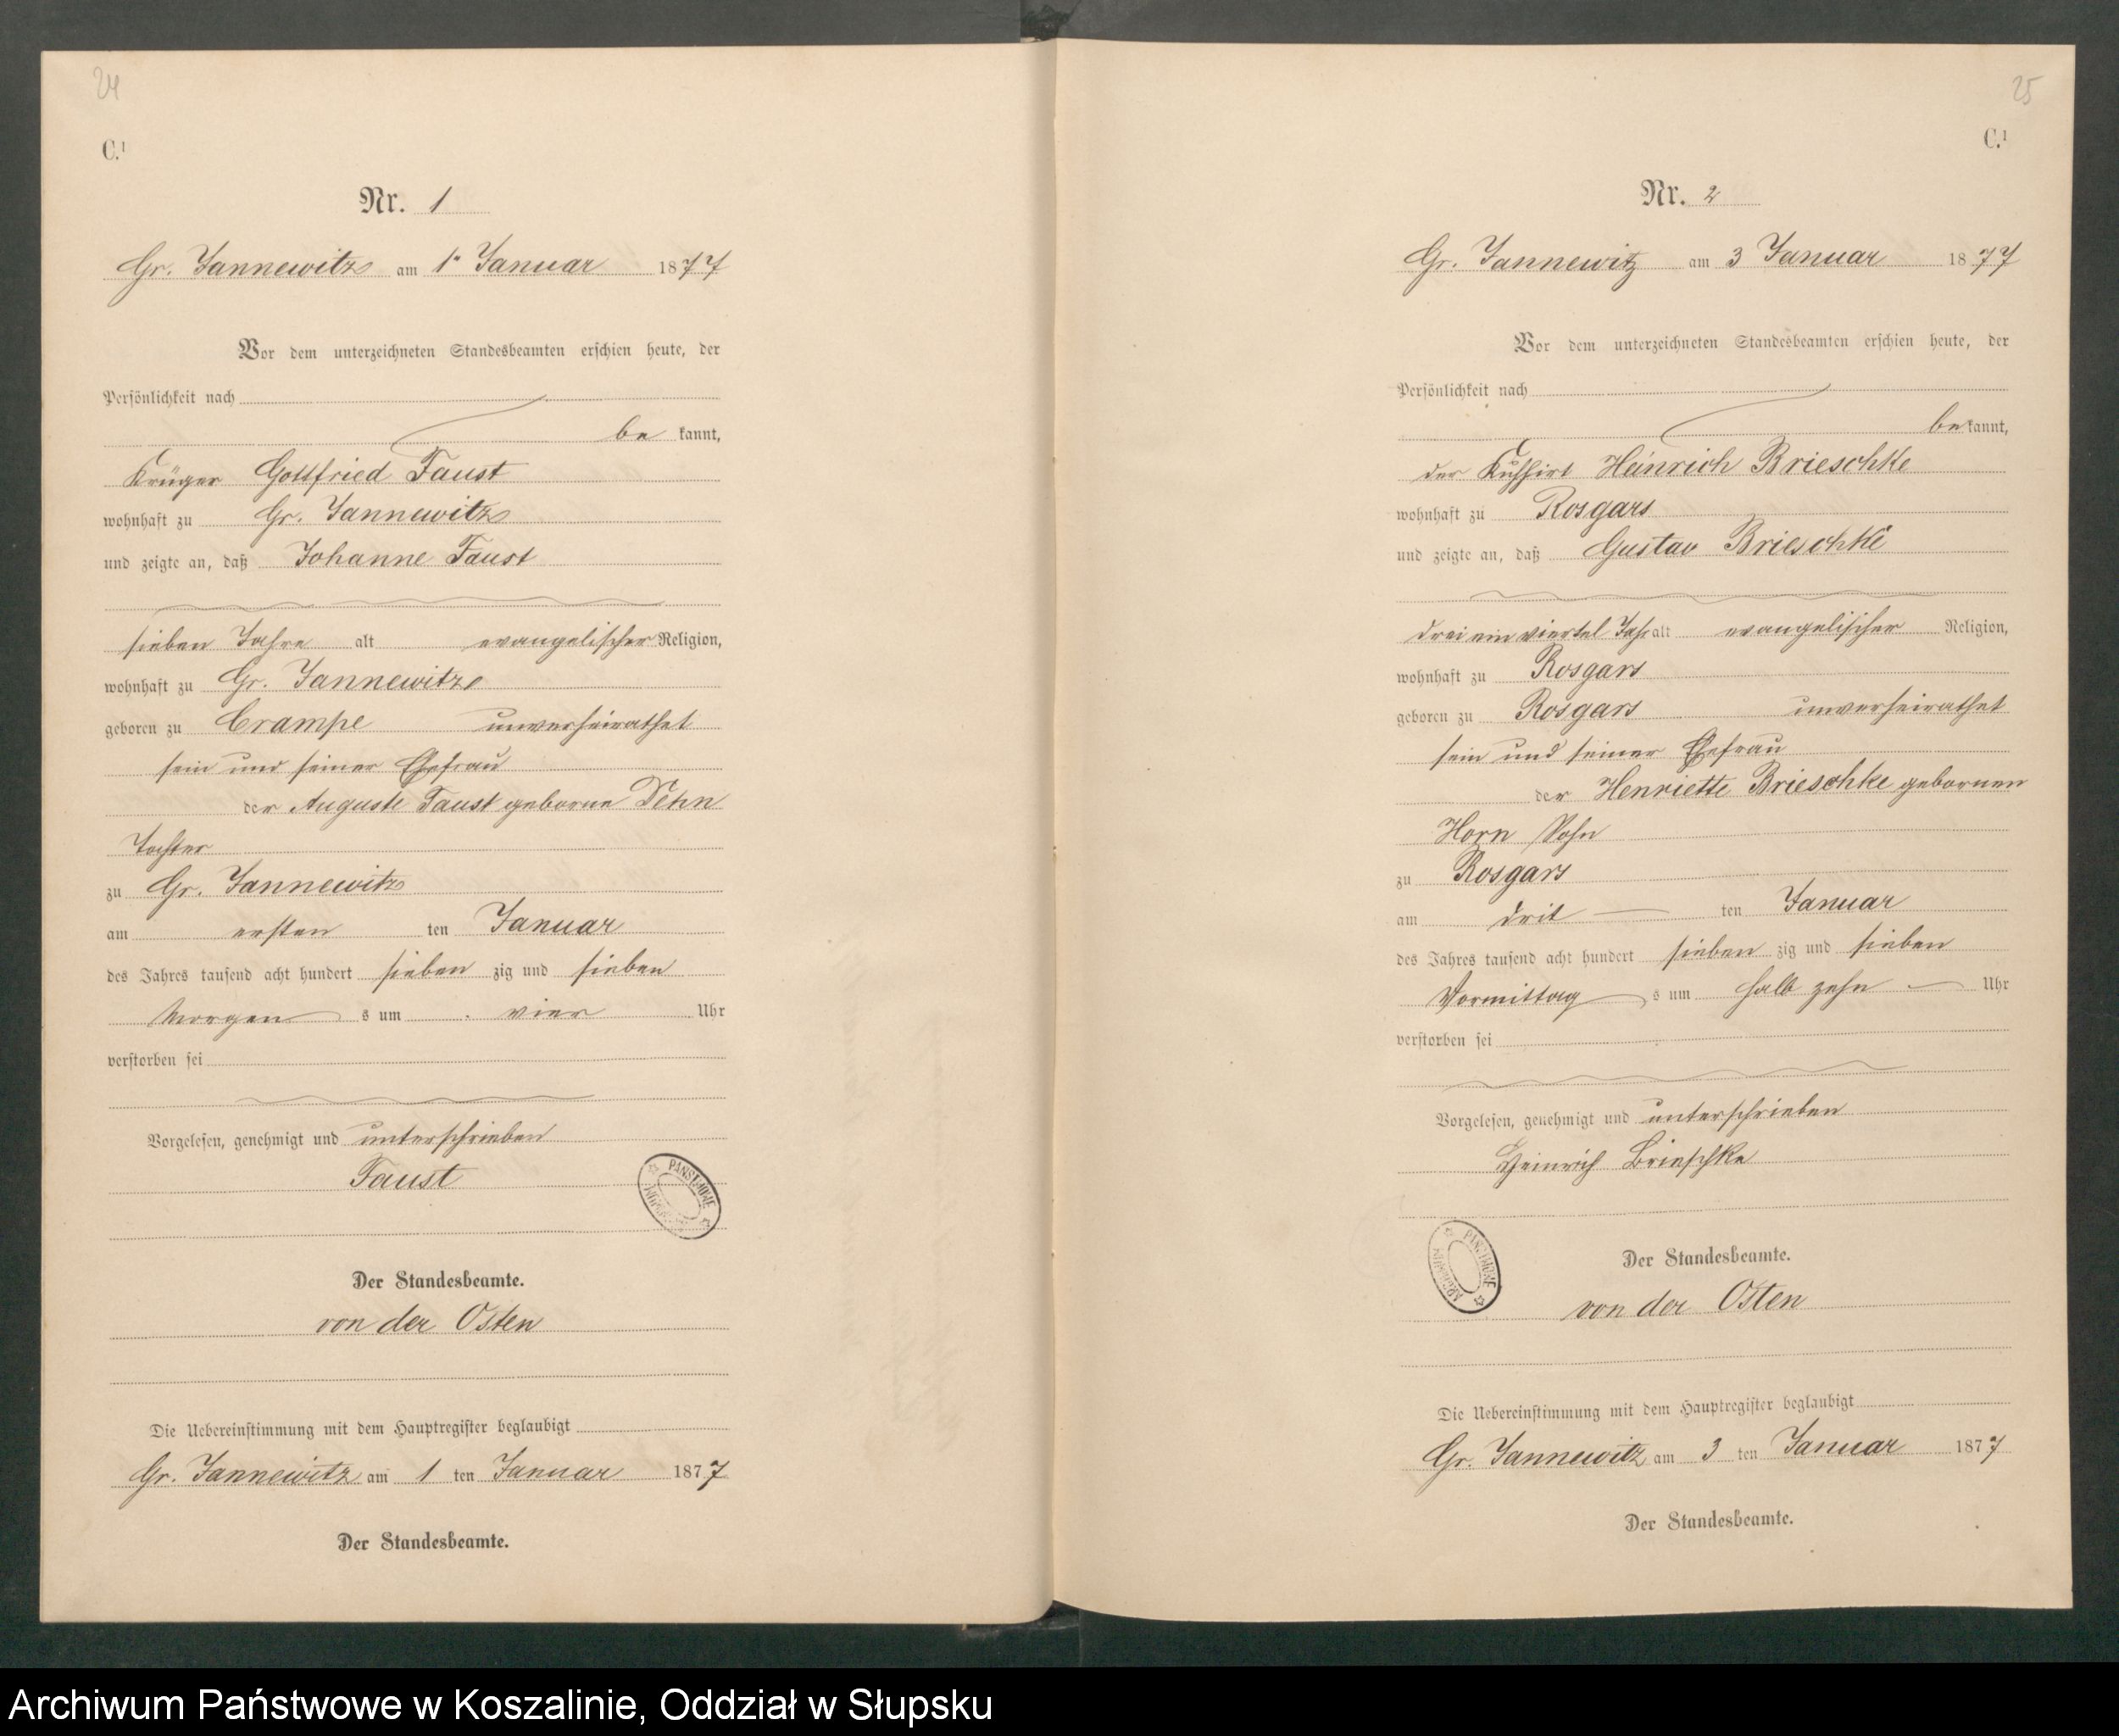 24
C.¹
Nr. 1
Gr. Jannewitz am 1ᵗ Januar 1877
Vor dem unterzeichneten Standesbeamten erschien heute, der
Persönlichkeit nach
be kannt,
Krüger Gottfried Faust
wohnhaft zu Gr. Jannewitz
und zeigte an, daß Johanne Faust
sieben Jahre alt evangelischer Religion,
wohnhaft zu Gr. Jannewitz
geboren zu Crampe unverheirathet
sein und seiner Ehefrau
der Auguste Faust geborne Dehn
Tochter
zu Gr. Jannewitz
am ersten ten Januar
des Jahres tausend acht hundert sieben zig und sieben
Morgen s um vier Uhr
verstorben sei
Vorgelesen, genehmigt und unterschrieben
Faust
PANSTWOWE ARCHIWUM
Der Standesbeamte.
von der Osten
Die Uebereinstimmung mit dem Hauptregister beglaubigt
Gr. Jannewitz am 1 ten Januar 1877
Der Standesbeamte.
25
C.¹
Nr. 2
Gr. Jannewitz am 3 Januar 1877
Vor dem unterzeichneten Standesbeamten erschien heute, der
Persönlichkeit nach
be kannt,
der Heinrich Brieschke
wohnhaft zu Rosgars
und zeigte an, daß Gustav Brieschke
drei ein viertel Jahr alt evangelischer Religion,
wohnhaft zu Rosgars
geboren zu Rosgars unverheirathet
sein und seiner Ehefrau
der Henriette Brieschke gebornen
Horn Sohn
zu Rosgars
am drit ten Januar
des Jahres tausend acht hundert sieben zig und sieben
Vormittag s um halb zehn Uhr
verstorben sei
Vorgelesen, genehmigt und unterschrieben
Heinrich Brieschke
PANSTWOWE ARCHIWUM
Der Standesbeamte.
von der Osten
Die Uebereinstimmung mit dem Hauptregister beglaubigt
Gr. Jannewitz am 3 ten Januar 1877
Der Standesbeamte.
Archiwum Państwowe w Koszalinie, Oddział w Słupsku